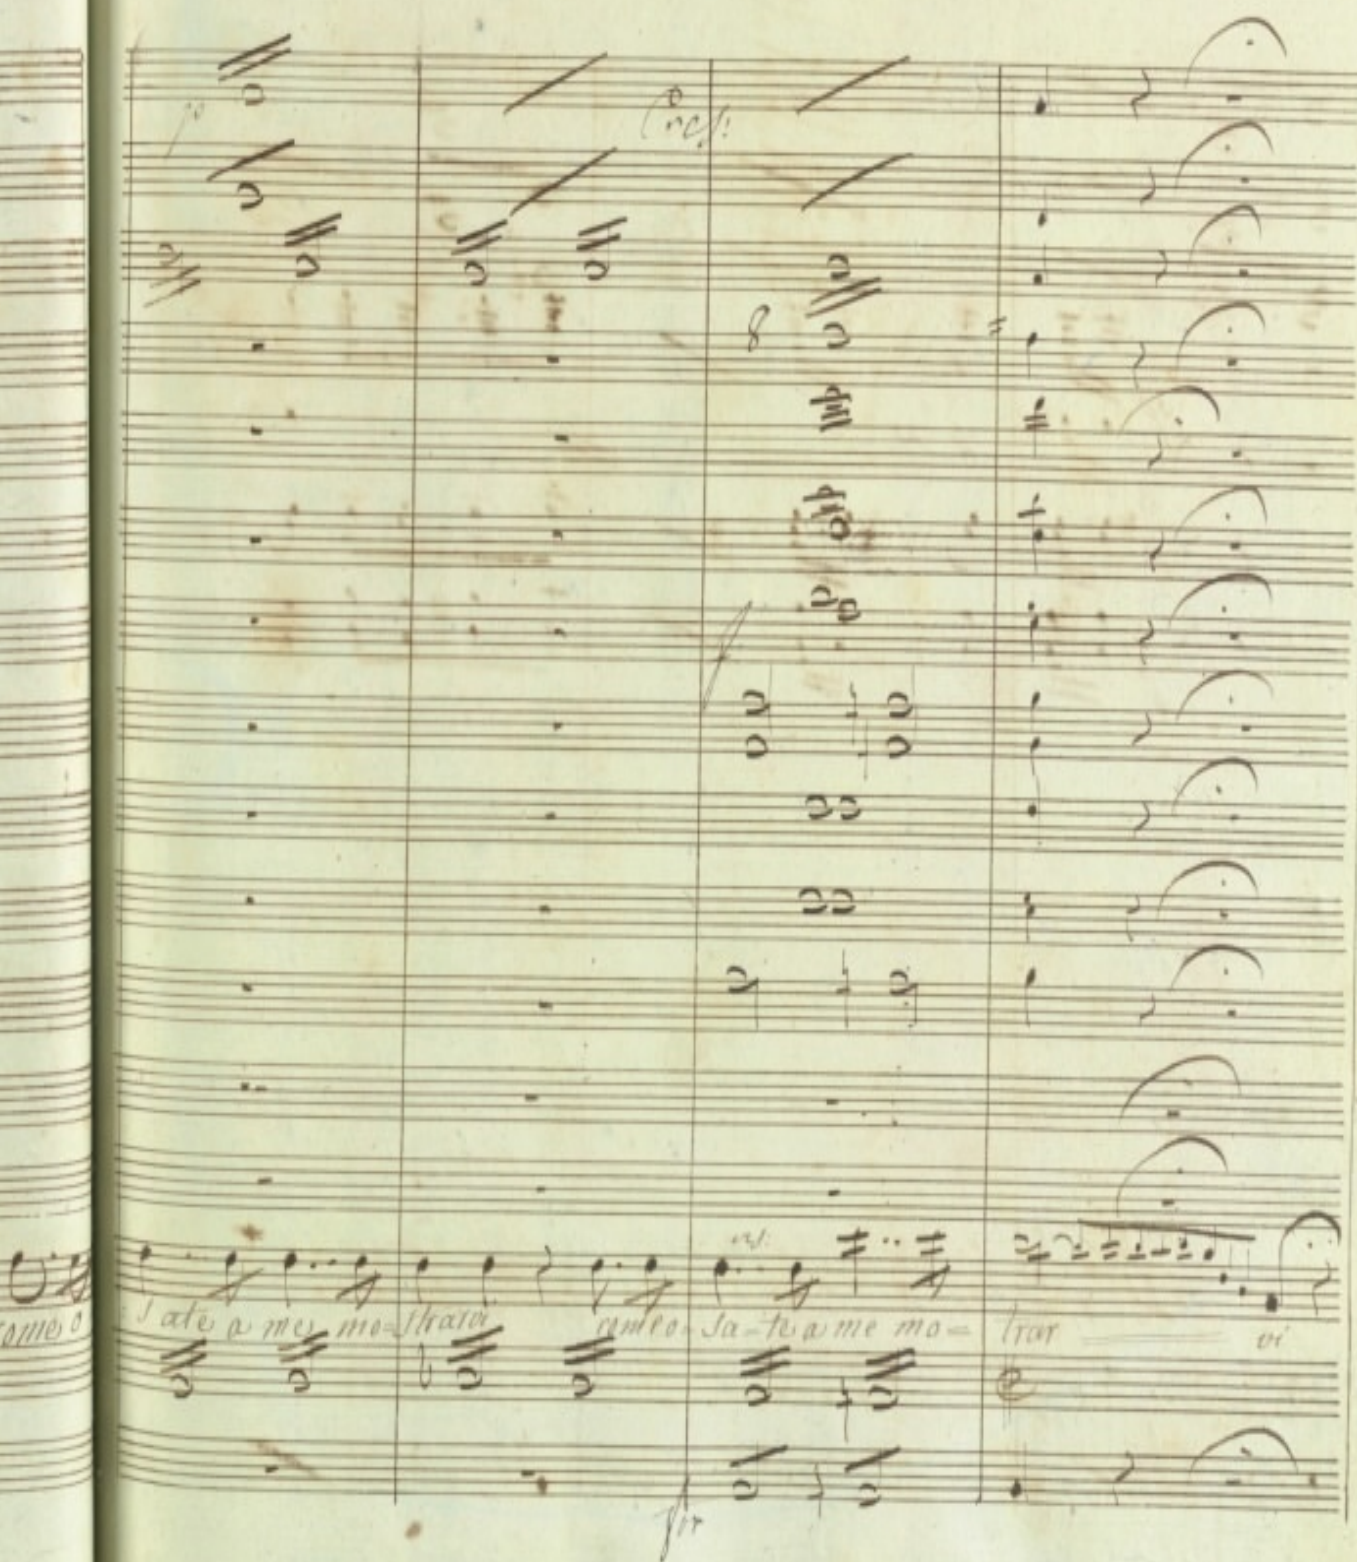 p
Cres:
8
f
ome o sate a me mo= strarvi comeo sa-te a me mo= trar vi
for